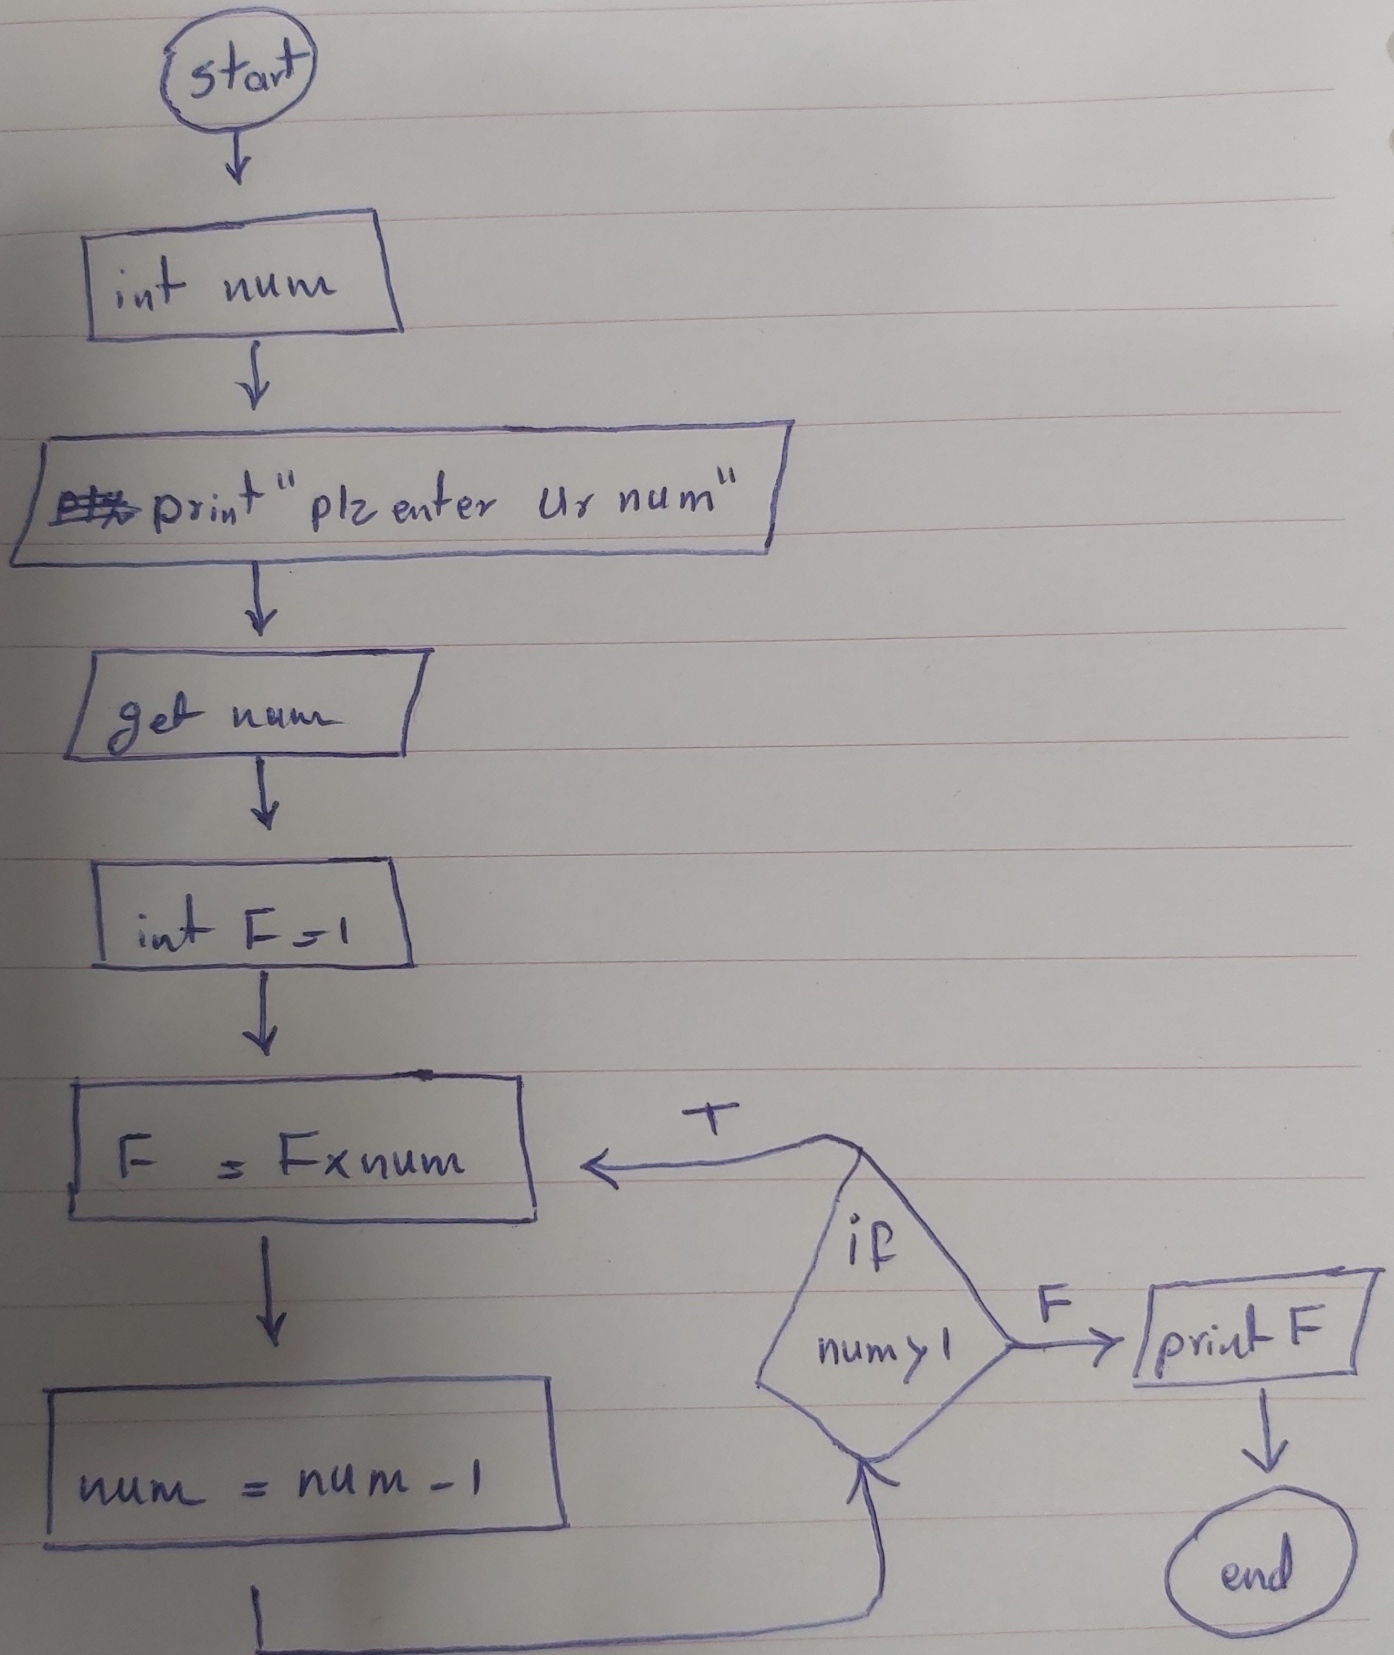 start
int num
print "plz enter ur num"
get num
int F = 1
F = F x num
num = num - 1
T
if
num > 1
F
print F
end